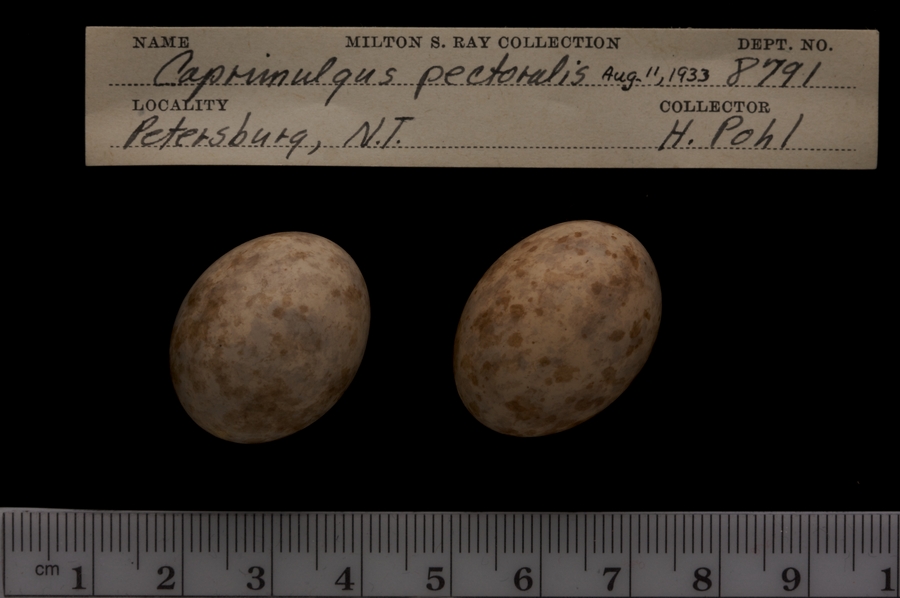 NAME MILTON S. RAY COLLECTION DEPT. NO.
Caprimulgus pectoralis Aug. 11, 1933 8791
LOCALITY COLLECTOR
Petersburg, N.T. H. Pohl
cm 1 2 3 4 5 6 7 8 9 1